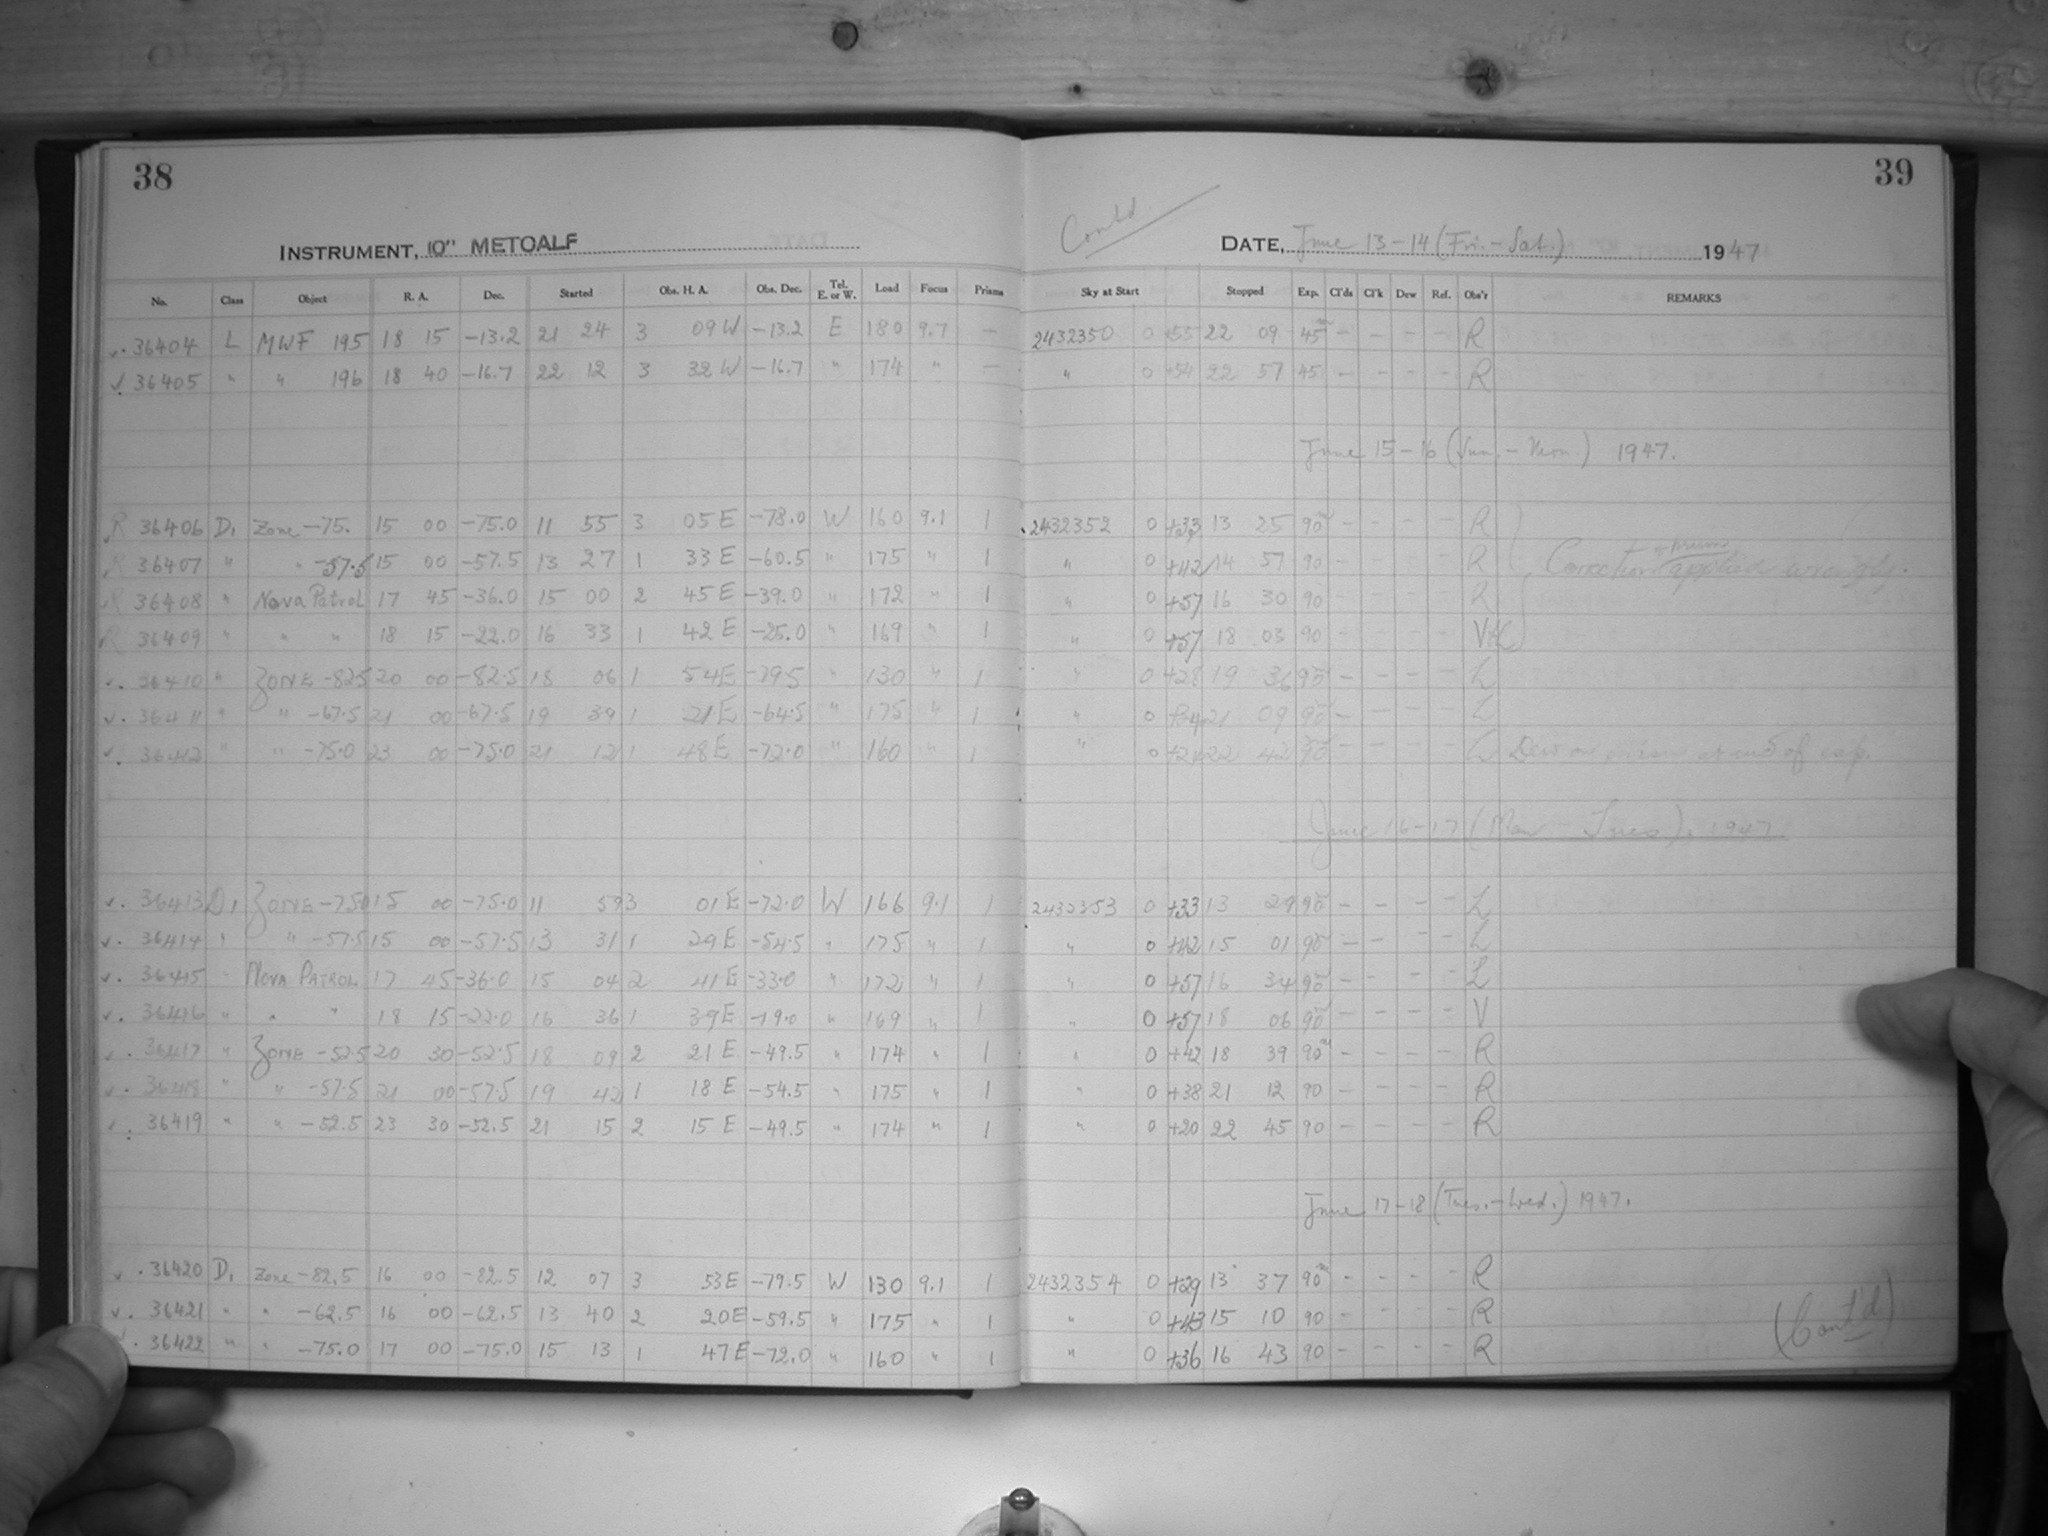 38
39
Cont'd
INSTRUMENT, 10" METCALF
DATE, June 13-14 (Fri.-Sat.) 1947
No. Class Object R. A. Dec. Started Obs. H. A. Obs. Dec. Tel. E. or W. Load Focus Prisms Sky at Start Stopped Exp. Cl'ds Cl'k Dew Ref. Obs'r REMARKS
v. 36404 L MWF 195 18 15 -13.2 21 24 3 09 W -13.2 E 180 9.7 — 2432350 0 +55 22 09 45m - - - - R
v. 36405 " " 196 18 40 -16.7 22 12 3 32 W -16.7 " 174 " — " 0 +54 22 57 45 - - - - R
June 15-16 (Sun.-Mon) 1947.
R 36406 D1 Zone -75. 15 00 -75.0 11 55 3 05 E -78.0 W 160 9.1 1 2432352 0 +33 13 25 90m - - - - R
R 36407 " " -57.5 15 00 -57.5 13 27 1 33 E -60.5 " 175 " 1 " 0 +42 14 57 90 - - - - R Correction of prism applied wrongly.
R 36408 " Nova Patrol 17 45 -36.0 15 00 2 45 E -39.0 " 172 " 1 " 0 +57 16 30 90 - - - - R
R 36409 " " " 18 15 -22.0 16 33 1 42 E -25.0 " 169 " 1 " 0 +57 18 03 90 - - - -
v. 36410 " ZONE -82.5 20 00 -82.5 18 06 1 54 E -79.5 " 130 " 1 " 0 +28 19 36 90m - - - - L
v. 36411 " " -67.5 21 00 -67.5 19 39 1 21 E -64.5 " 175 " 1 " 0 +34 21 09 90m - - - - L
v. 36412 " " -75.0 23 00 -75.0 21 12 1 48 E -72.0 " 160 " 1 " 0 +24 22 42 90m - - - - L Dew on prism at end of exp.
June 16-17 (Mon - Tues). 1947
v. 36413 D1 ZONE -75.0 15 00 -75.0 11 59 3 01 E -72.0 W 166 9.1 1 2432353 0 +33 13 29 90m - - - - L
v. 36414 " " -57.5 15 00 -57.5 13 31 1 29 E -54.5 " 175 " 1 " 0 +42 15 01 90m - - - - L
v. 36415 " NOVA PATROL 17 45 -36.0 15 04 2 41 E -33.0 " 172 " 1 " 0 +57 16 34 90m - - - - L
v. 36416 " " " 18 15 -22.0 16 36 1 39 E -19.0 " 169 " 1 " 0 +57 18 06 90m - - - - V
v. 36417 " ZONE -52.5 20 30 -52.5 18 09 2 21 E -49.5 " 174 " 1 " 0 +42 18 39 90m - - - - R
v. 36418 " " -57.5 21 00 -57.5 19 42 1 18 E -54.5 " 175 " 1 " 0 +38 21 12 90 - - - - R
v. 36419 " " -52.5 23 30 -52.5 21 15 2 15 E -49.5 " 174 " 1 " 0 +20 22 45 90 - - - - R
June 17-18 (Tues.-Wed.) 1947.
v. 36420 D1 Zone -82.5 16 00 -82.5 12 07 3 53 E -79.5 W 130 9.1 1 2432354 0 +29 13 37 90m - - - - R
v. 36421 " " -62.5 16 00 -62.5 13 40 2 20 E -59.5 " 175 " 1 " 0 +43 15 10 90 - - - - R
v. 36422 " " -75.0 17 00 -75.0 15 13 1 47 E -72.0 " 160 " 1 " 0 +36 16 43 90 - - - - R
(Cont'd)